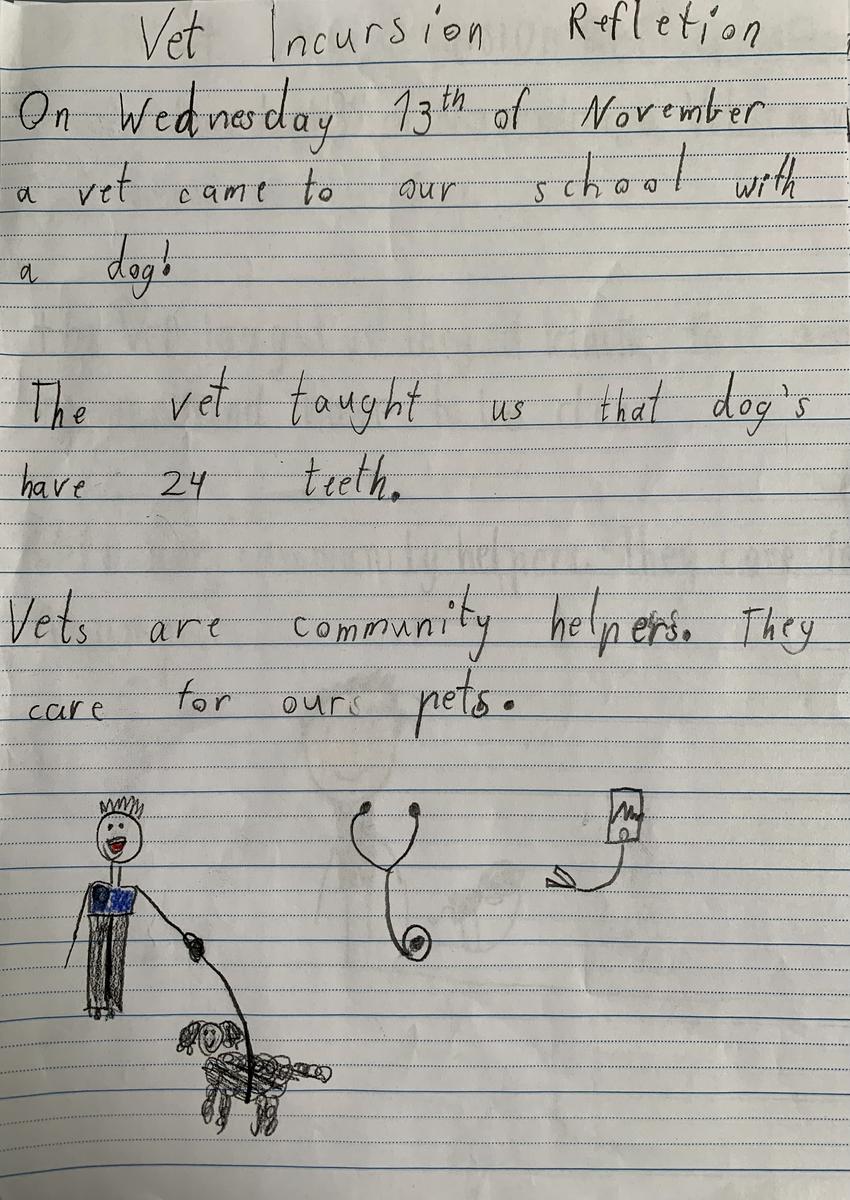 Vet Incursion Refletion
On Wednesday 13th of November
a vet came to our school with
a dog!
The vet taught us that dog's
have 24 teeth.
Vets are community helpers. They
care for ours pets.